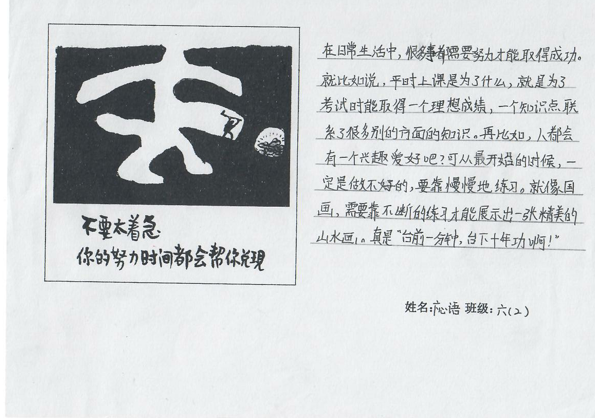 不要太着急
你的努力时间都会帮你兑现
在日常生活中，很多事都需要努力才能取得成功。
就比如说，平时上课是为了什么，就是为了
考试时能取得一个理想成绩，一个知识点联
系了很多别的方面的知识。再比如，人都会
有一个兴趣爱好吧？可从最开始的时候，一
定是做不好的，要靠慢慢地练习。就像国
画，需要靠不断的练习才能展示出一张精美的
山水画。真是“台前一分钟，台下十年功啊！”
姓名：沁语 班级：六（2）